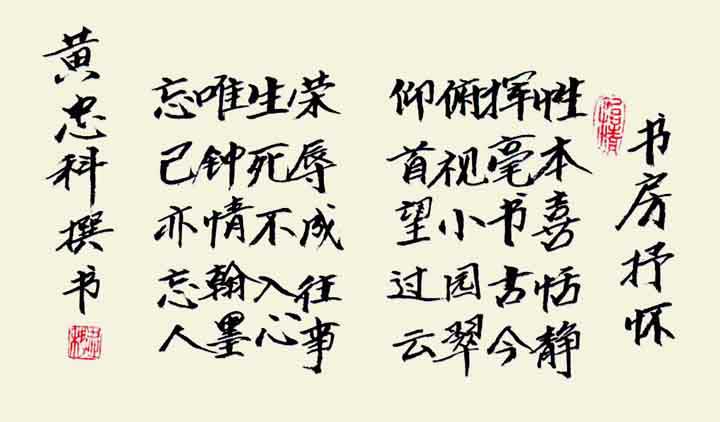 书房抒怀
性本喜恬静
挥毫书古今
俯视小园翠
仰首望过云
荣辱成往事
生死不入心
唯钟情翰墨
忘己亦忘人
黄忠科撰书